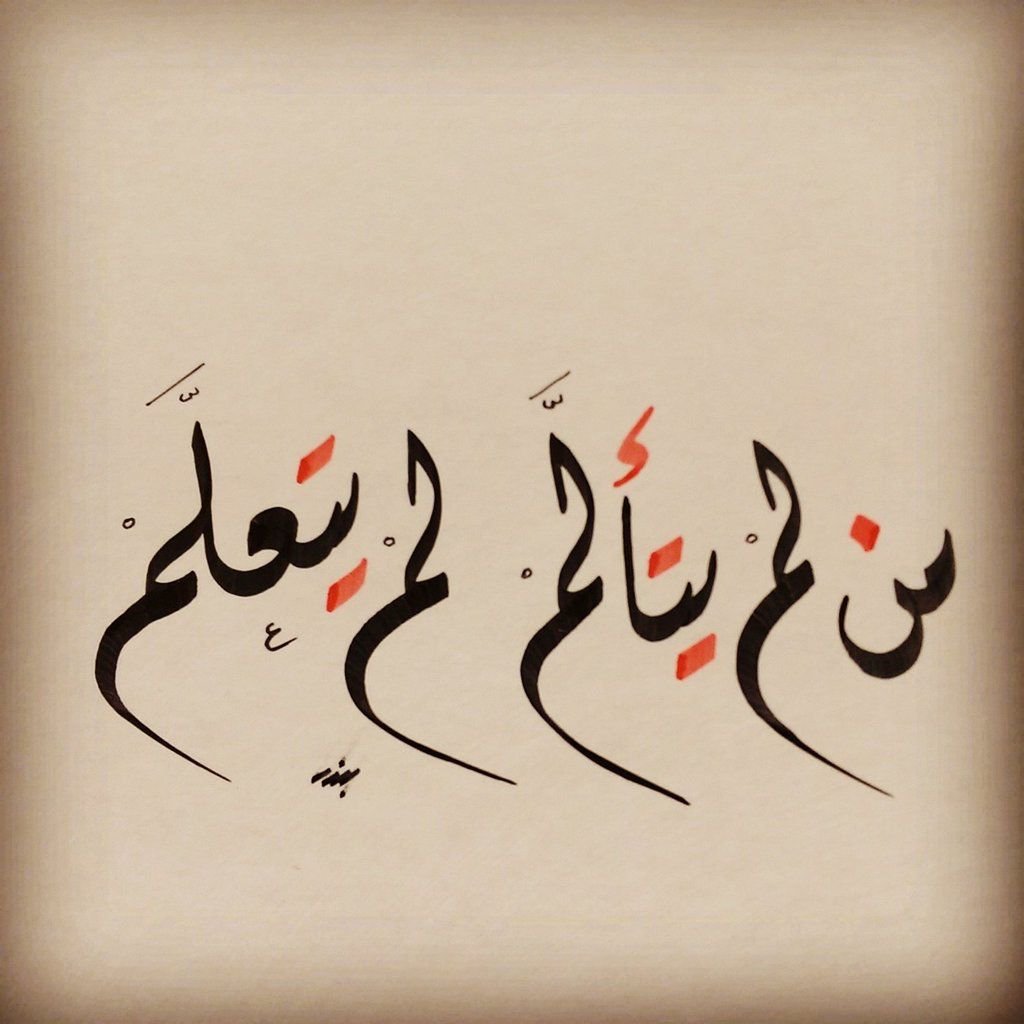 من لمْ يتألَّمْ لمْ يتعلَّمْ
بندر